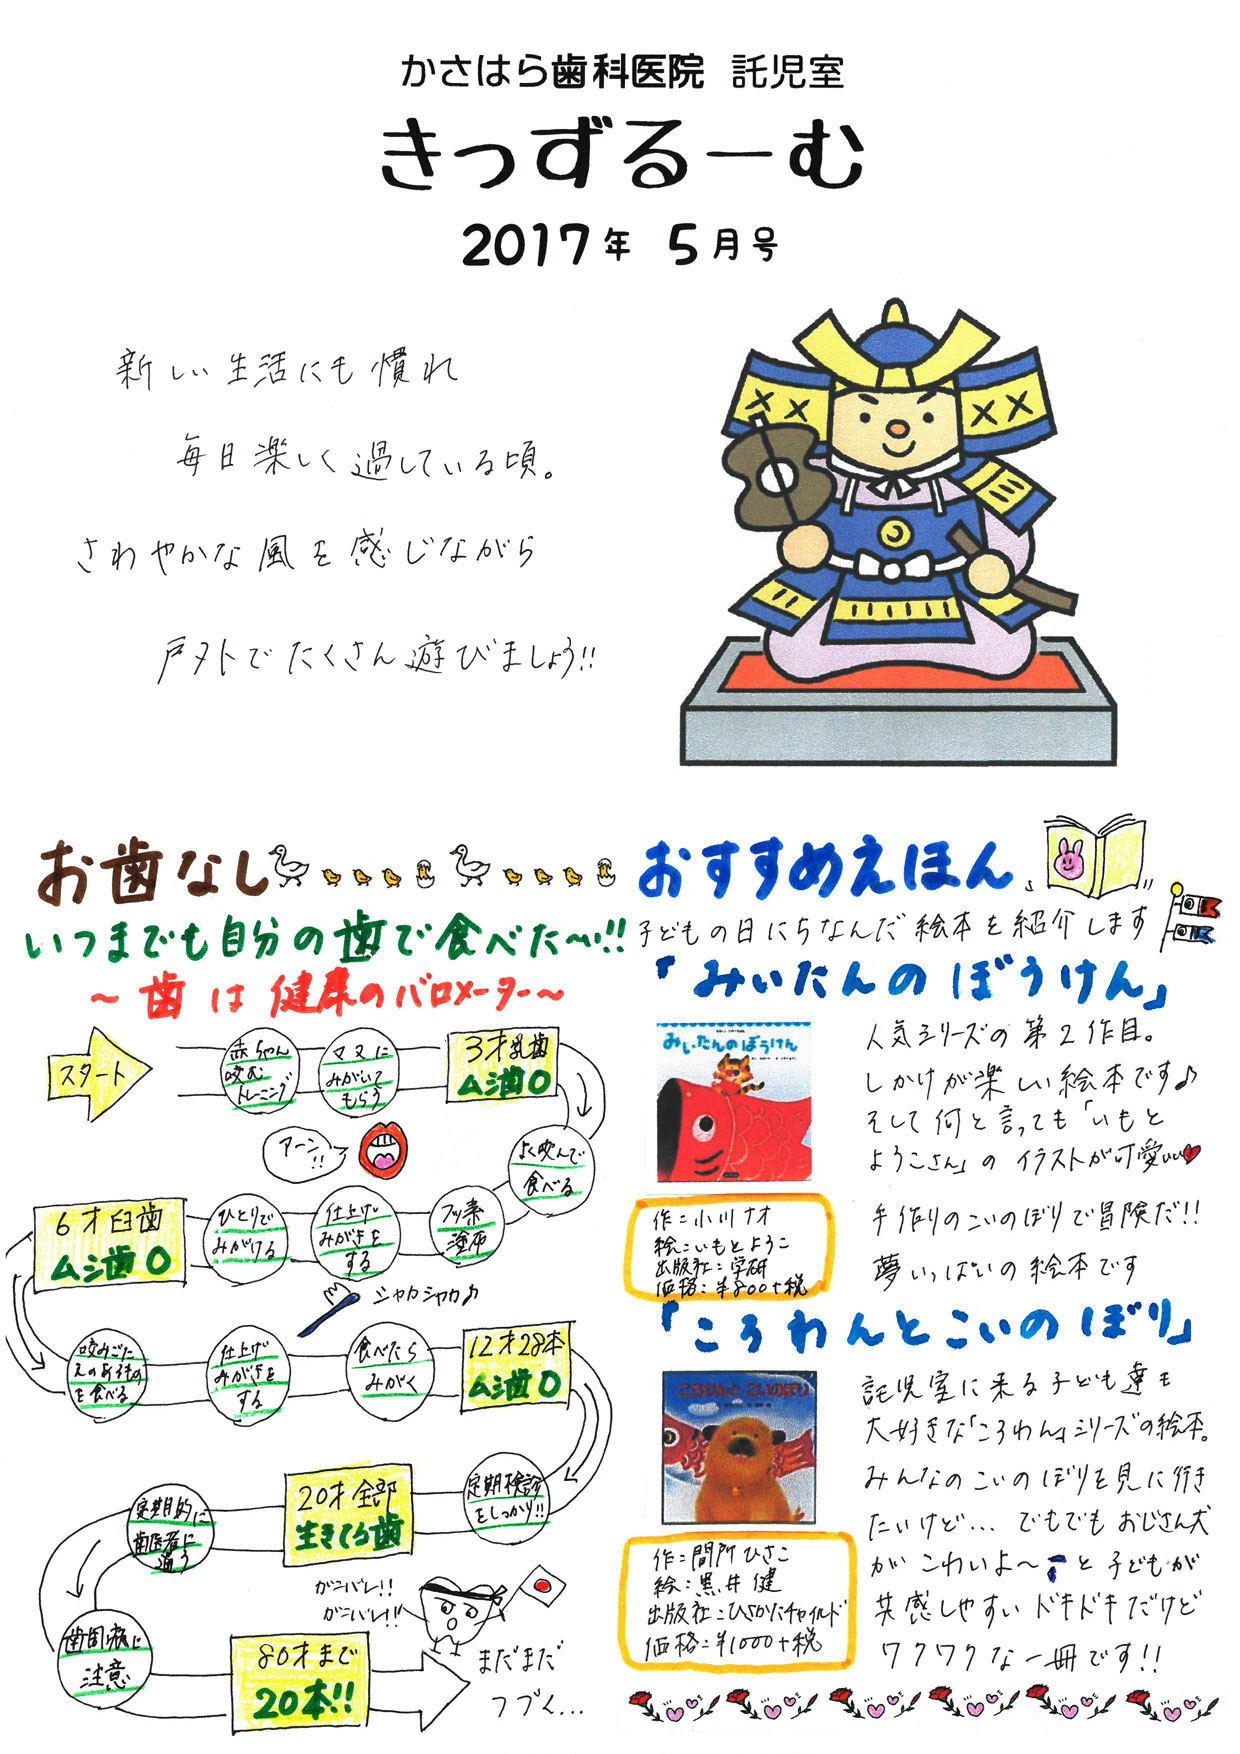 かさはら歯科医院 託児室
きっずるーむ
2017年 5月号
新しい生活にも慣れ
毎日楽しく過している頃。
さわやかな風を感じながら
戸外でたくさん遊びましょう!!
お歯なし
いつまでも自分の歯で食べた〜い!!
〜歯は健康のバロメーター〜
スタート
赤ちゃん
咬む
トレーニング
ママに
みがいて
もらう
3才乳歯
ムシ歯0
よく咬んで
食べる
アーン
!!
フッ素
塗布
仕上げ
みがきを
する
ひとりで
みがける
6才臼歯
ムシ歯0
シャカシャカ♪
咬みごた
えのあるもの
を食べる
仕上げ
みがきを
する
食べたら
みがく
12才28本
ムシ歯0
定期検診
をしっかり!!
20才全部
生きてる歯
定期的に
歯医者に
通う
歯周病に
注意
ガンバレ!!
ガンバレ!!
80才まで
20本!!
まだまだ
つづく...
おすすめえほん
子どもの日にちなんだ絵本を紹介します
「みぃたんのぼうけん」
みぃたんのぼうけん
人気シリーズの第2作目。
しかけが楽しい絵本です♪
そして何と言っても「いもと
ようこさん」のイラストが可愛い♥
手作りのこいのぼりで冒険だ!!
夢いっぱいの絵本です
作:小川ナオ
絵:いもとようこ
出版社:学研
価格:¥800+税
「ころわんとこいのぼり」
ころわんと こいのぼり
託児室に来る子ども達も
大好きな「ころわん」シリーズの絵本。
みんなのこいのぼりを見に行き
たいけど... でもでも おじさん犬
が こわいよ〜 と子どもが
共感しやすい ドキドキだけど
ワクワクな一冊です!!
作:間所ひさこ
絵:黒井 健
出版社:ひさかたチャイルド
価格:¥1000+税